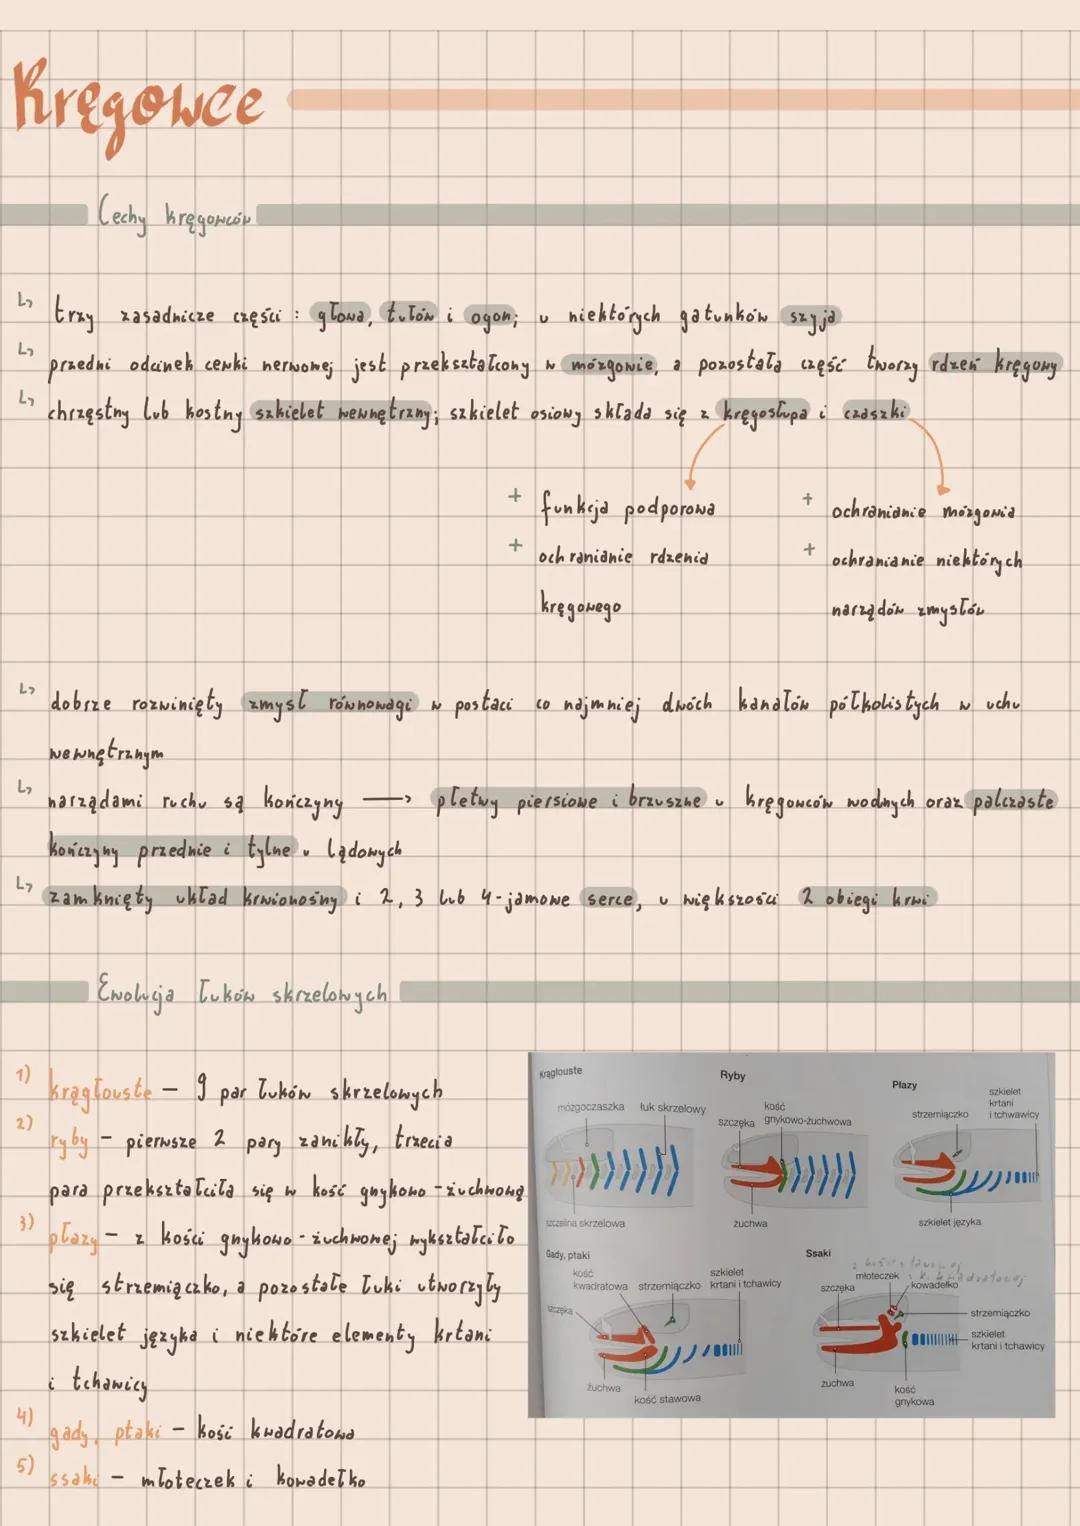 Kręgowce
Cechy kręgowców
↳ trzy zasadnicze części : głowa, tułów i ogon; u niektórych gatunków szyja
↳ przedni odcinek cewki nerwowej jest przekształcony w mózgowie, a pozostała część tworzy rdzeń kręgowy
↳ chrzęstny lub kostny szkielet wewnętrzny; szkielet osiowy składa się z kręgosłupa i czaszki
+ funkcja podporowa
+ ochranianie rdzenia
kręgowego
+ ochranianie mózgowia
+ ochranianie niektórych
narządów zmysłów
↳ dobrze rozwinięty zmysł równowagi w postaci co najmniej dwóch kanałów półkolistych w uchu
wewnętrznym
↳ narządami ruchu są kończyny → płetwy piersiowe i brzuszne u kręgowców wodnych oraz palczaste
kończyny przednie i tylne u lądowych
↳ zamknięty układ krwionośny i 2, 3 lub 4-jamowe serce, u większości 2 obiegi krwi
Ewolucja łuków skrzelowych
1) krągłouste - 9 par łuków skrzelowych
2) ryby - pierwsze 2 pary zanikły, trzecia
para przekształciła się w kość gnykowo-żuchwową
3) płazy - z kości gnykowo-żuchwowej wykształciło
się strzemiączko, a pozostałe łuki utworzyły
szkielet języka i niektóre elementy krtani
i tchawicy
4) gady, ptaki - kość kwadratowa
5) ssaki - młoteczek i kowadełko
Krągłouste
mózgoczaszka
łuk skrzelowy
szczelina skrzelowa
Ryby
szczęka
kość
gnykowo-żuchwowa
żuchwa
Płazy
strzemiączko
szkielet
krtani
i tchwawicy
szkielet języka
Gady, ptaki
kość
kwadratowa
strzemiączko
szkielet
krtani i tchawicy
szczęka
żuchwa
kość stawowa
Ssaki
z kości stawowej
młoteczek
z k. kwadratowej
szczęka
kowadełko
strzemiączko
szkielet
krtani i tchawicy
żuchwa
kość
gnykowa